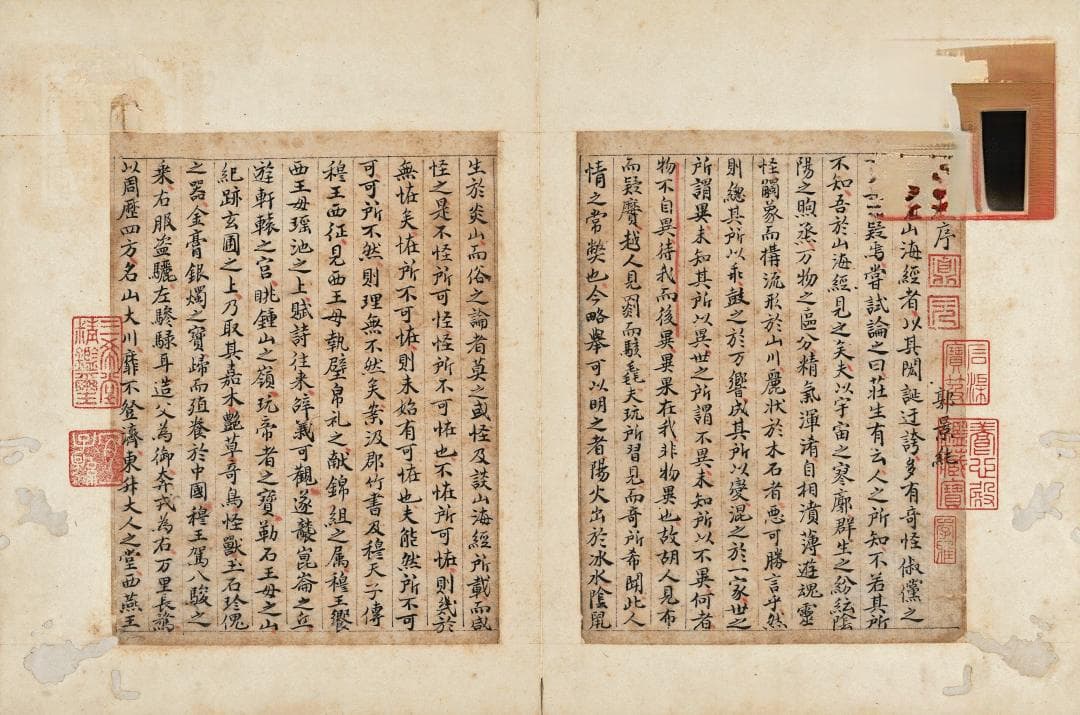 序 郭景純
山海經者以其閎誕迂誇多有奇怪俶儻之
疑焉嘗試論之曰莊生有云人之所知不若其所
不知吾於山海經見之矣夫以宇宙之寥廓群生之紛紜陰
陽之煦烝万物之區分精氣渾淆自相濆薄遊魂靈
怪觸象而構流形於山川麗狀於木石者惡可勝言乎然
則總其所以乖鼓之於万響成其所以變混之於一家世之
所謂異未知其所以異世之所謂不異未知所以不異何者
物不自異待我而後異異果在我非物異也故胡人見布
而疑黂越人見罽而駭毳夫玩所習見而奇所希聞此人
情之常弊也今略舉可以明之者陽火出於冰水陰鼠
生於炎山而俗之論者莫之或怪及談山海經所載而咸
怪之是不怪所可怪怪所不可怪也不怪所可怪則幾於
無怪矣怪所不可怪則未始有可怪也夫能然所不可
可可所不然則理無不然矣案汲郡竹書及穆天子傳
穆王西征見西王母執璧帛礼之献錦組之属穆王饗
西王母瑶池之上賦詩往来辝義可觀遂襲崑崙之丘
遊軒轅之宮眺鍾山之嶺玩帝者之寶勒石王母之山
紀跡玄圃之上乃取其嘉木艶草奇鳥怪獸玉石珍傀
之器金膏銀燭之寶歸而殖養於中國穆王駕八駿之
乘右服盗驪左驂騄耳造父為御奔戎為右万里長騖
以周歷四方名山大川靡不登濟東升大人之堂西燕王
石渠寶笈
養心殿鑑藏寶
三希堂精鑑璽
宜子孫